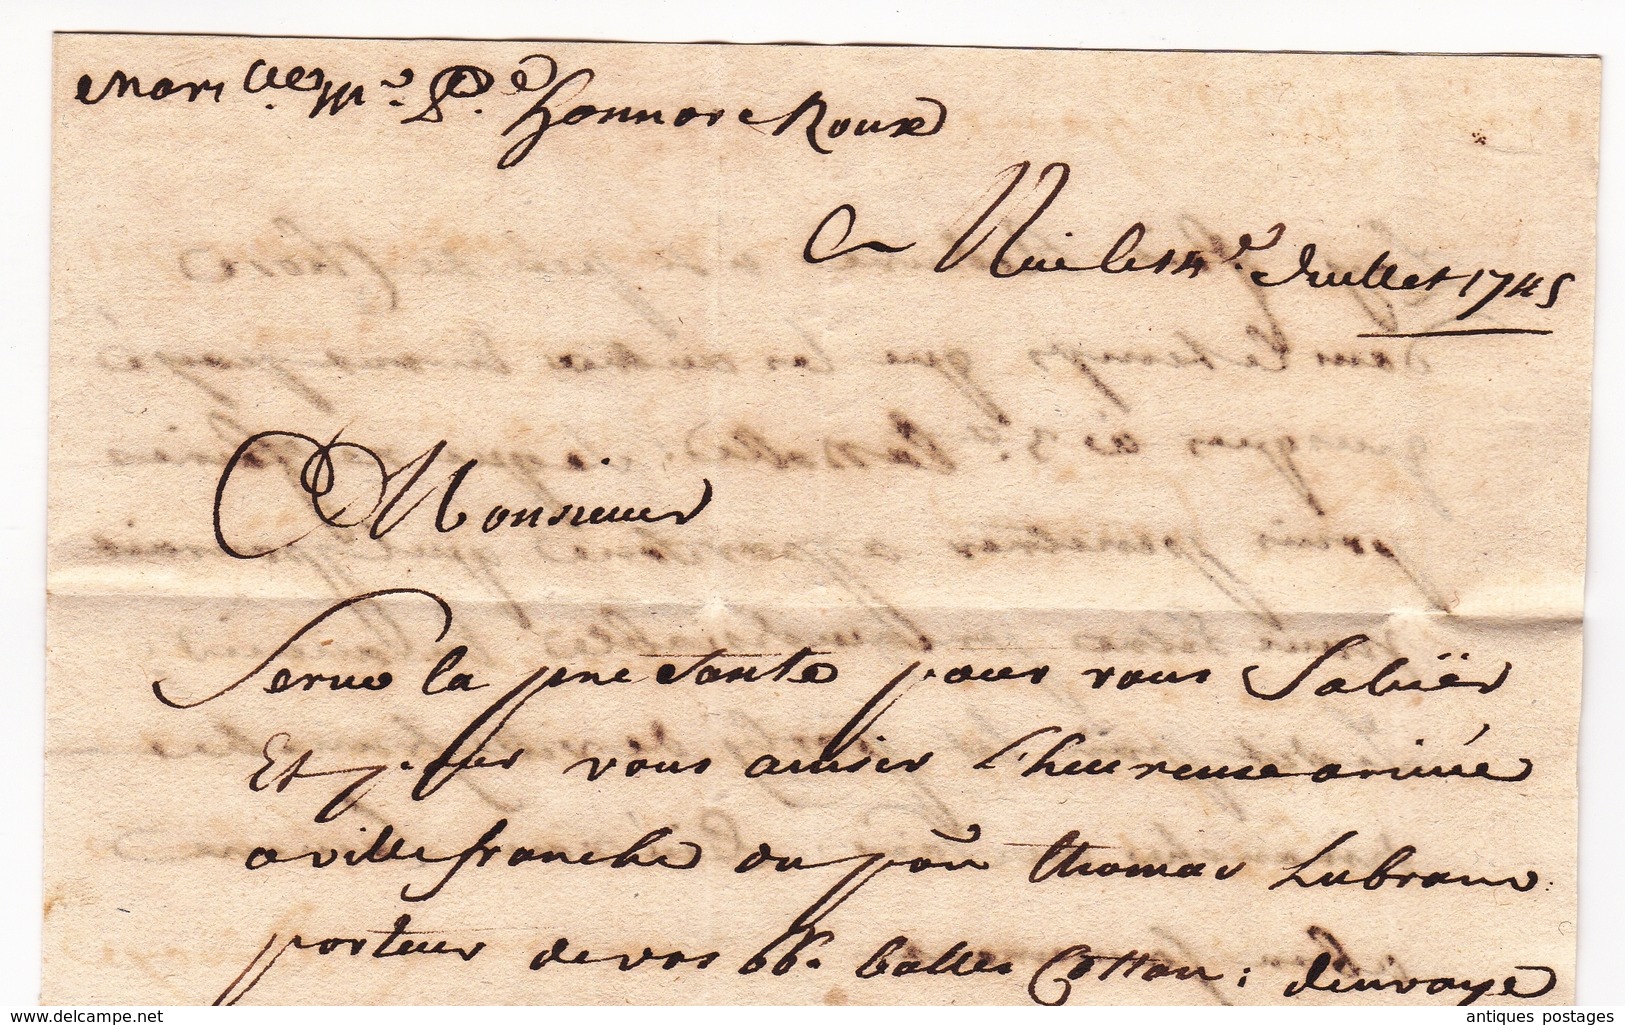 Mars.lle M.r P.re honnore Roux
a Nice le 14.e Juillet 1745
Monsieur
Serve la presante pour vous Salüer
Et pour vous aviser L'heureuse arivée
a villefranche du pon Thomas Lubrano
porteur de vos 66. balles Cotton; denvoye
antiques postages